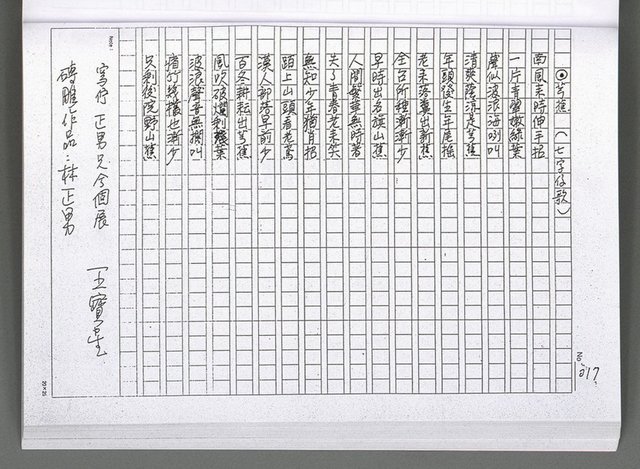 ◎芎蕉（七字仔歌）
南風來時伸手招
一片青翠嫩綠葉
親像波浪海咧叫
清爽蔭涼是芎蕉
年頭後生年尾搖
老來落葉出新蕉
全台所種漸漸少
早時出名旗山蕉
人間繁華無時著
失了青春老來笑
無知少年猶肖招
路上山頭看老鳶
漢人部落早前少
百冬耕耘出芎蕉
風吹破爛剩殘葉
波浪聲音無攔叫
檳榔也漸少
只剩後院野山蕉
寫佇正男兄今個展
磚雕作品：林正男
王寶星
No. 217
20×25
Note